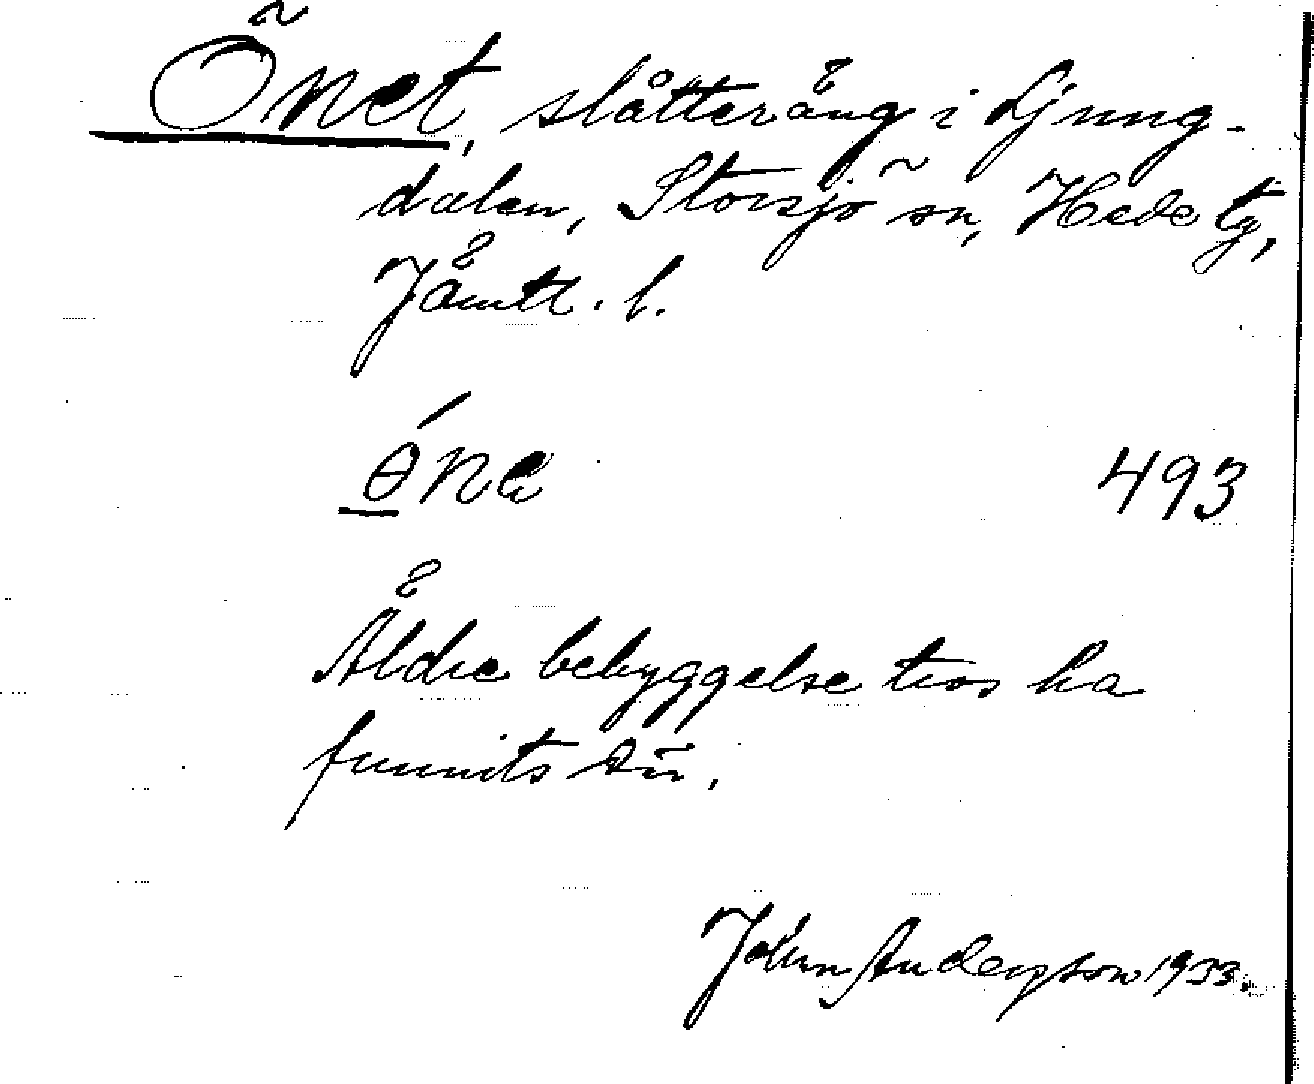 Önet, slåtteräng i Ljung-
dalen, Storsjö sn, Hede tg,
Jämtl. l.
ө́nə 493
Äldre bebyggelse tros ha
funnits där.
John Andersson 1933.